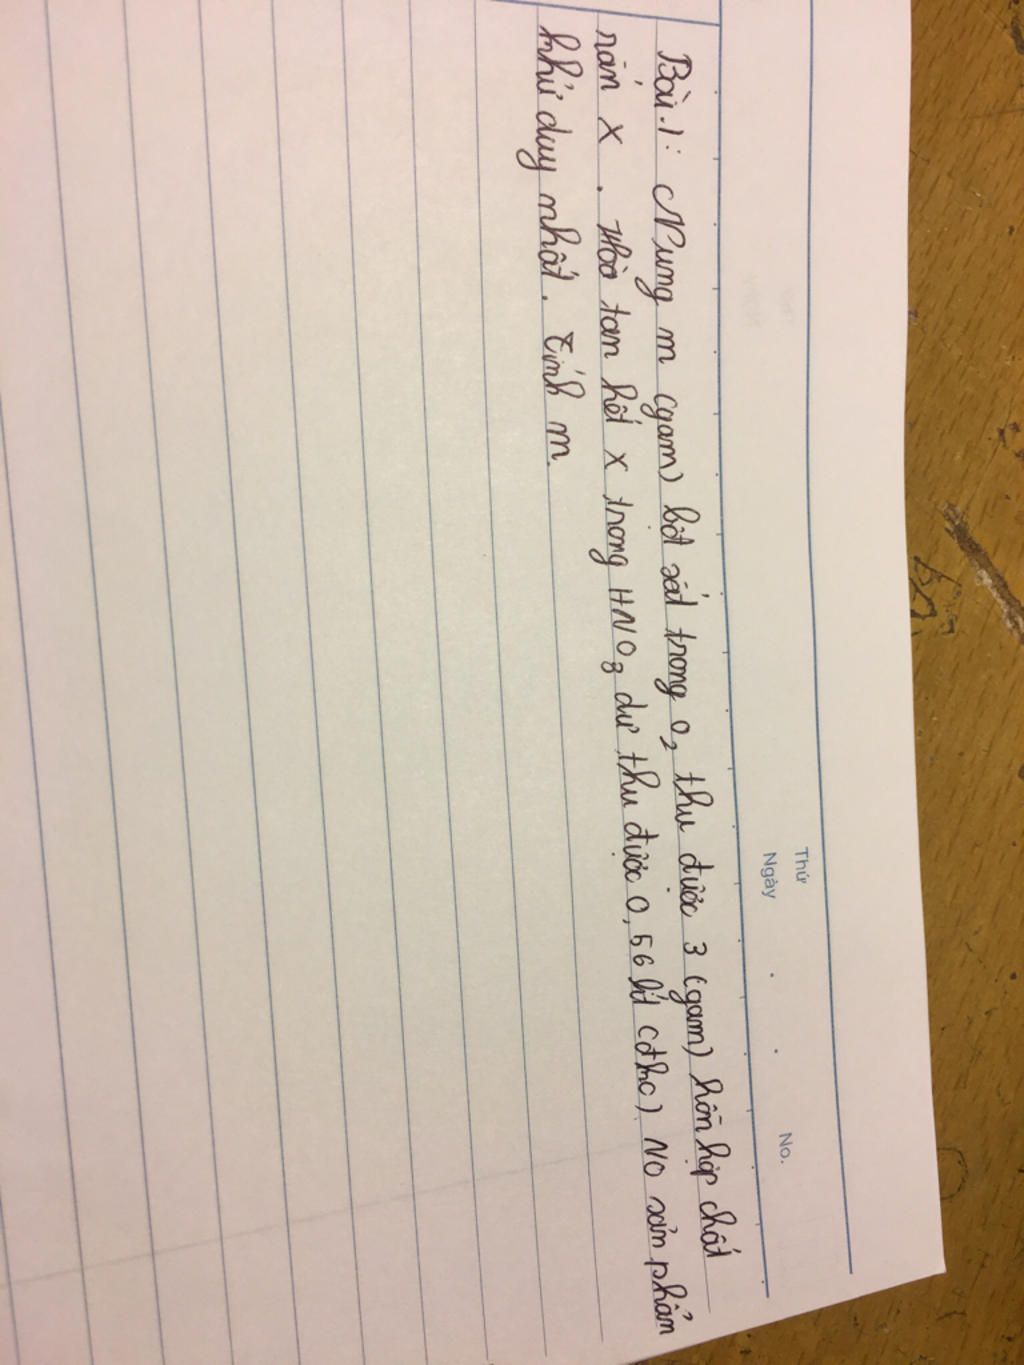 Thứ
Ngày . . No.
Bài 1: Nung m (gam) bột sắt trong O₂ thu được 3 (gam) hỗn hợp chất
rắn X. Hòa tan hết X trong HNO₃ dư thu được 0,56 lít (đktc) NO sản phẩm
khử duy nhất. Tính m.